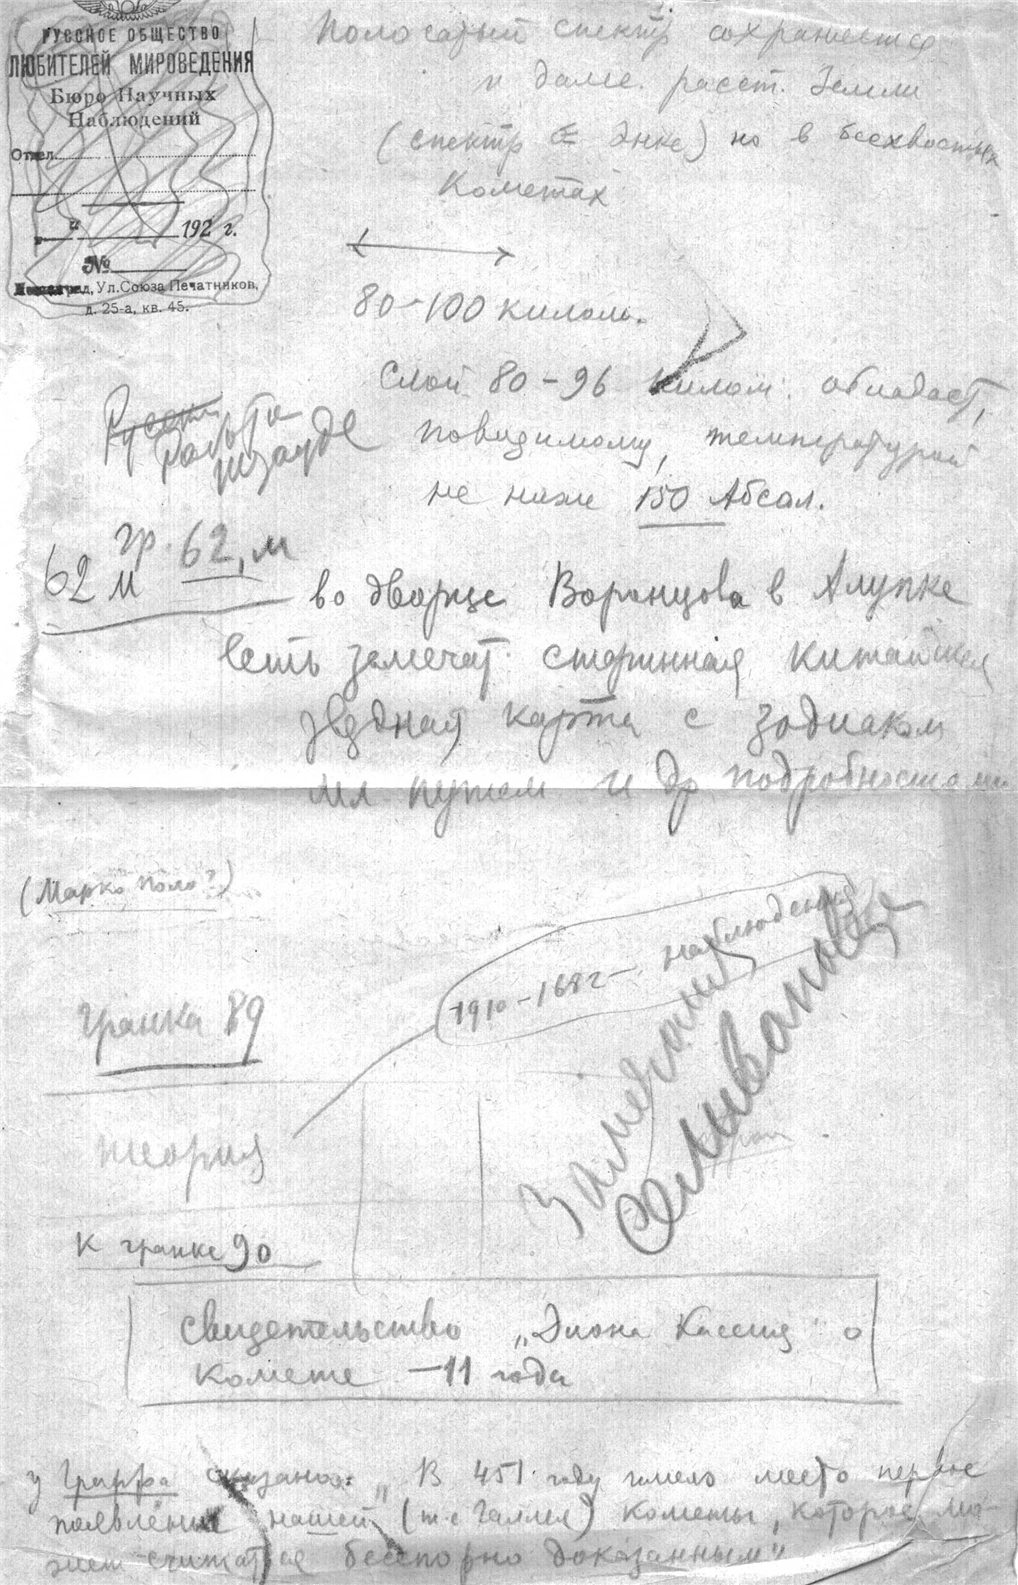 РУССКОЕ ОБЩЕСТВО
ЛЮБИТЕЛЕЙ МИРОВЕДЕНИЯ
Бюро Научных
Наблюдений
Отдел
„ “ 192 г.
№
Ул. Союза Печатников,
д. 25-а, кв. 45.
Полосатый спектр сохраняется
и далее расст. Земли
(спектр Энке) но в бесхвостых
Кометах
80-100 килом.
Слой 80-96 килом. обладает,
повидимому, температурой
не ниже 150 Абсол.
Работа
гр. 62, м
62 м
во дворце Воронцова в Алупке
есть замечат. старинная китайская
звздная карта с зодиаком
мл. путем и др подробностями
(Марко Поло?)
1910-1682- наблюдения
Замечания
Селиванова
гранка 89
теория
К гранке 90
Свидетельство „Диона Кассия“ о
комете -11 года
у Граффа сказано: „В 451 году имело место первое
появление нашей (т.е Галлея) кометы, которое мо-
жет считаться бесспорно доказанным“